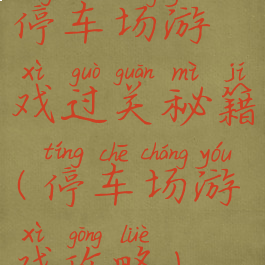 停车场游
xì guò guān mì jí
戏过关秘籍
tíng chē chǎng yóu
(停车场游
xì gōng lüè
戏攻略)